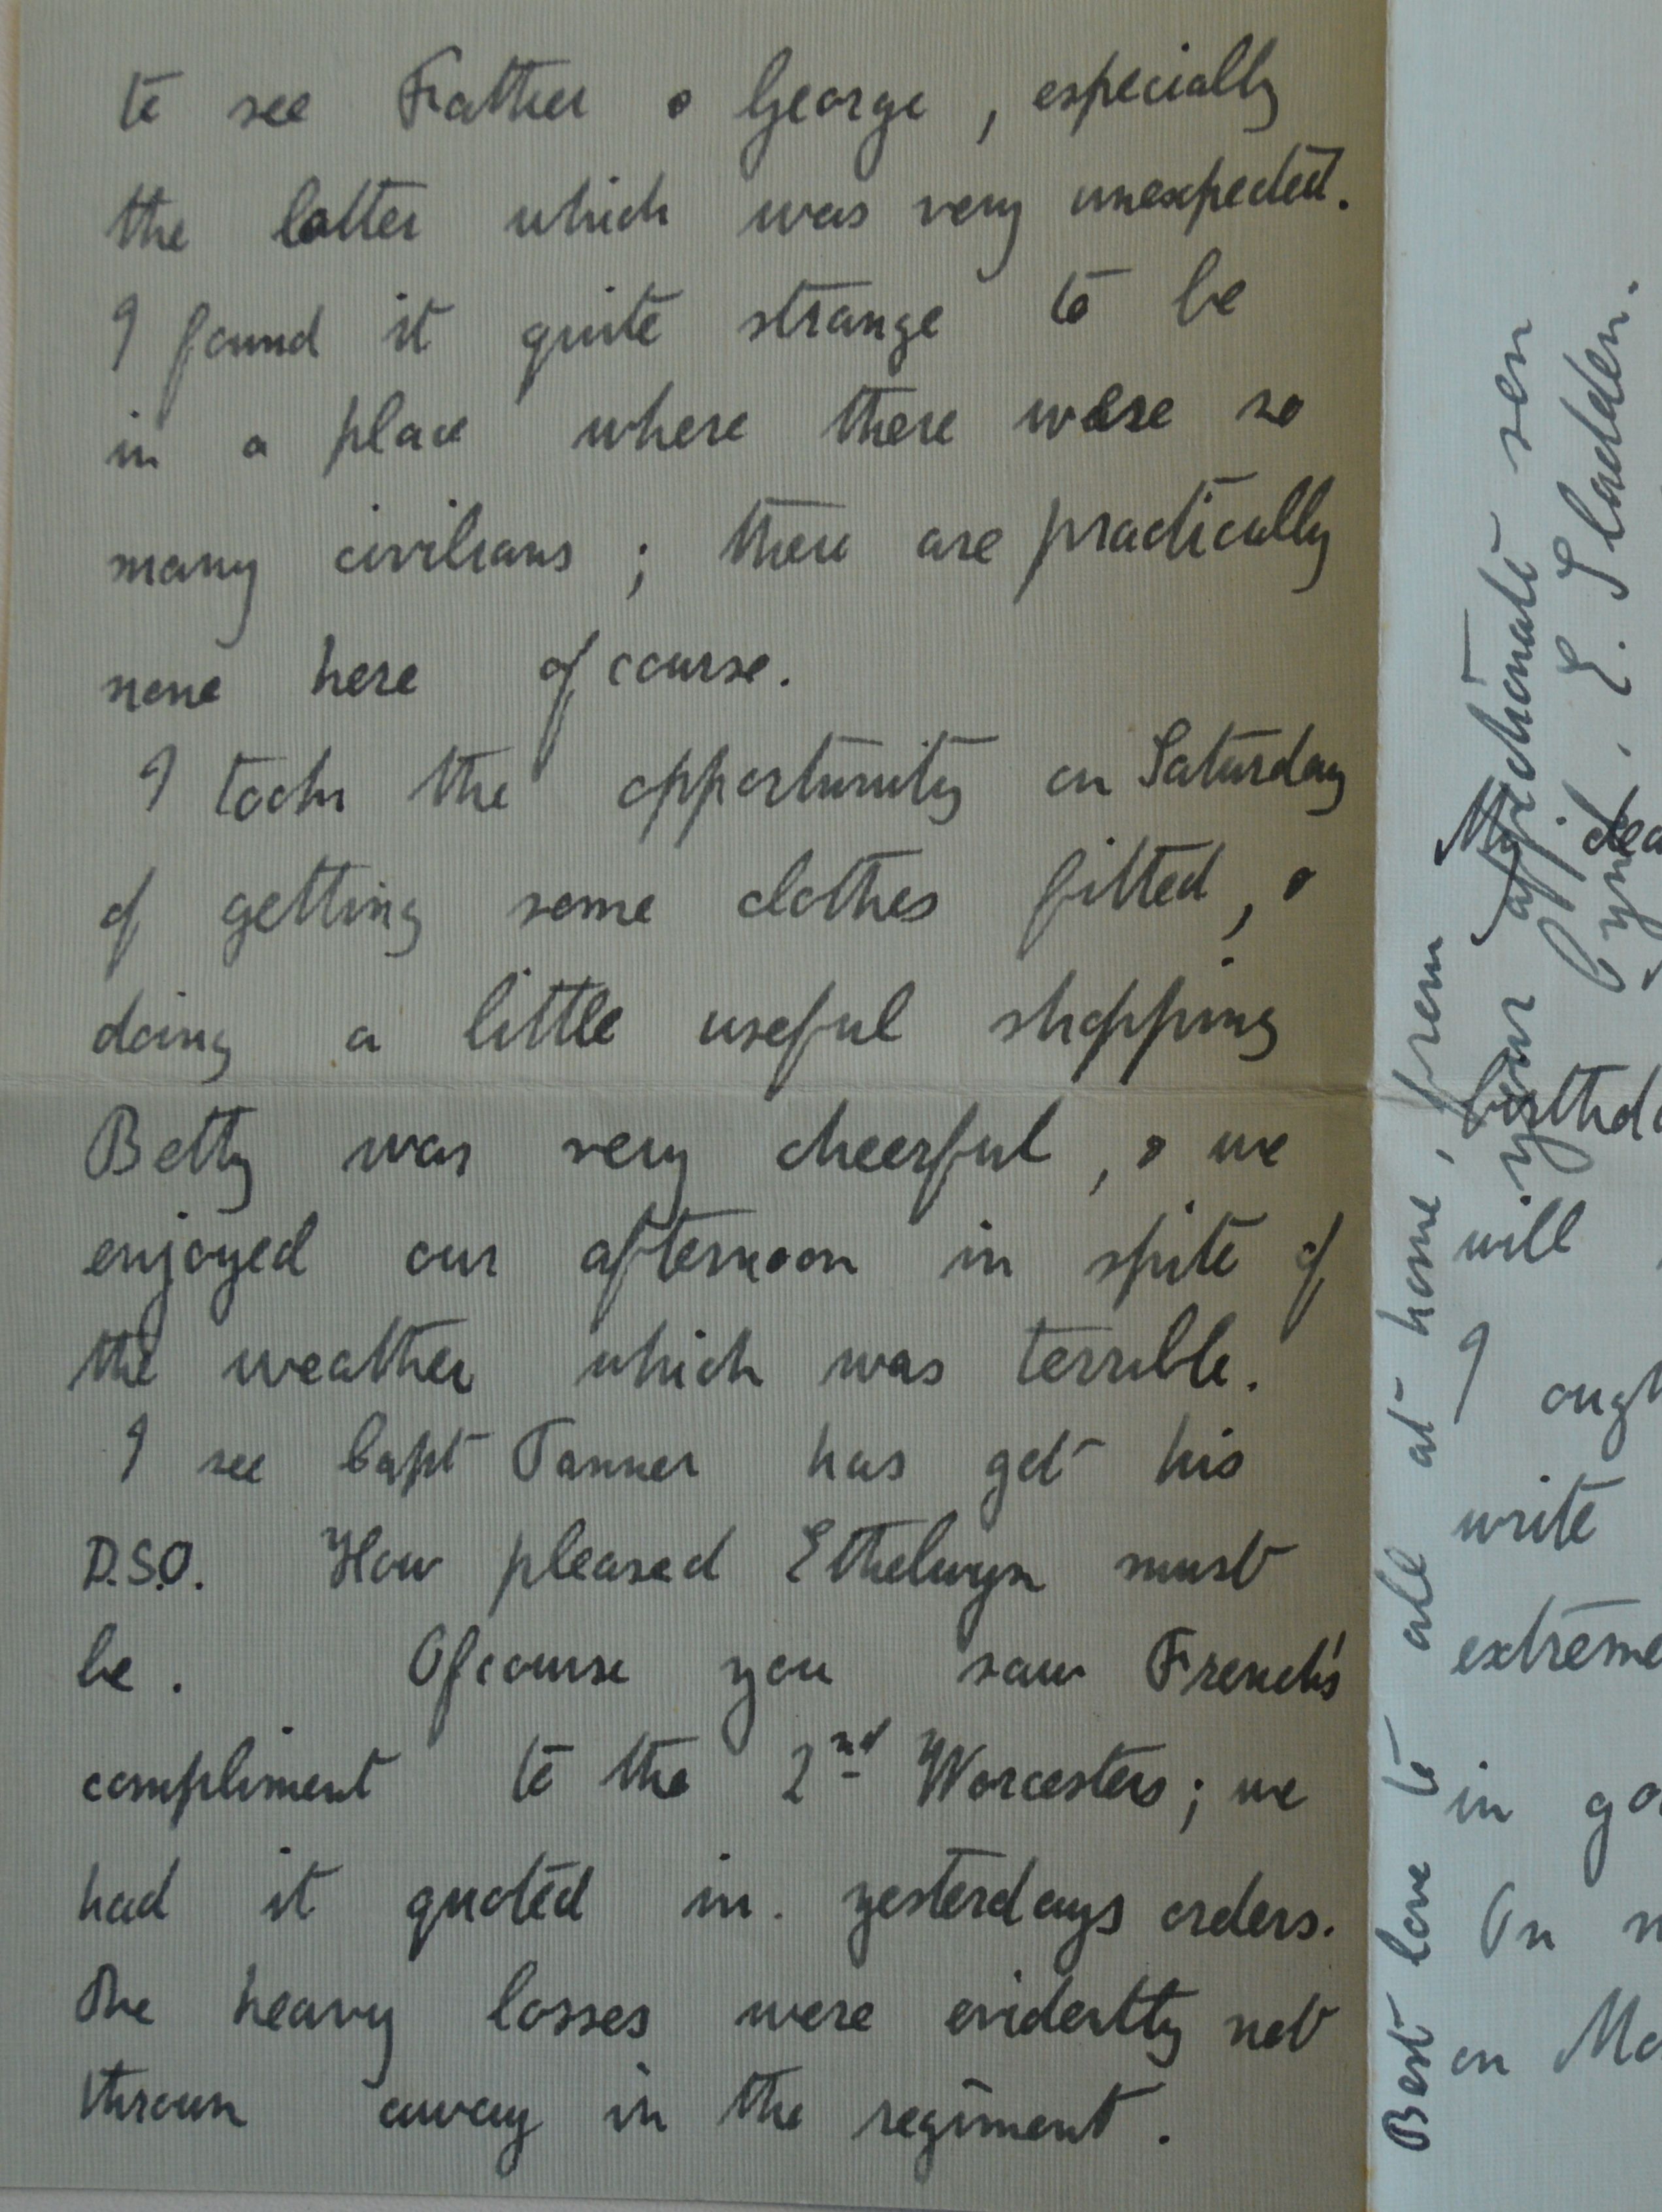 to see Father & George, especially
the latter which was very unexpected.
I found it quite strange to be
in a place where there were so
many civilians; there are practically
none here of course.
I took the opportunity on Saturday
of getting some clothes fitted, &
doing a little useful shopping
Betty was very cheerful, & we
enjoyed our afternoon in spite of
the weather which was terrible.
I see Capt Tanner has got his
D.S.O. How pleased Ethelwyn must
be. Ofcourse you saw French's
compliment to the 2nd Worcesters; we
had it quoted in yesterdays orders.
The heavy losses were evidently not
thrown away in the regiment.
Best love to all at home, from
your affectionate son
Cyril E. Sladden.
My dea
birthda
will
I ough
write
extreme
in go
On
on Mo